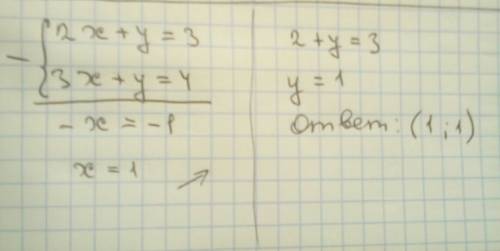 - { 2x + y = 3
3x + y = 4
- x = -1
x = 1
2 + y = 3
y = 1
Ответ: (1 ; 1)